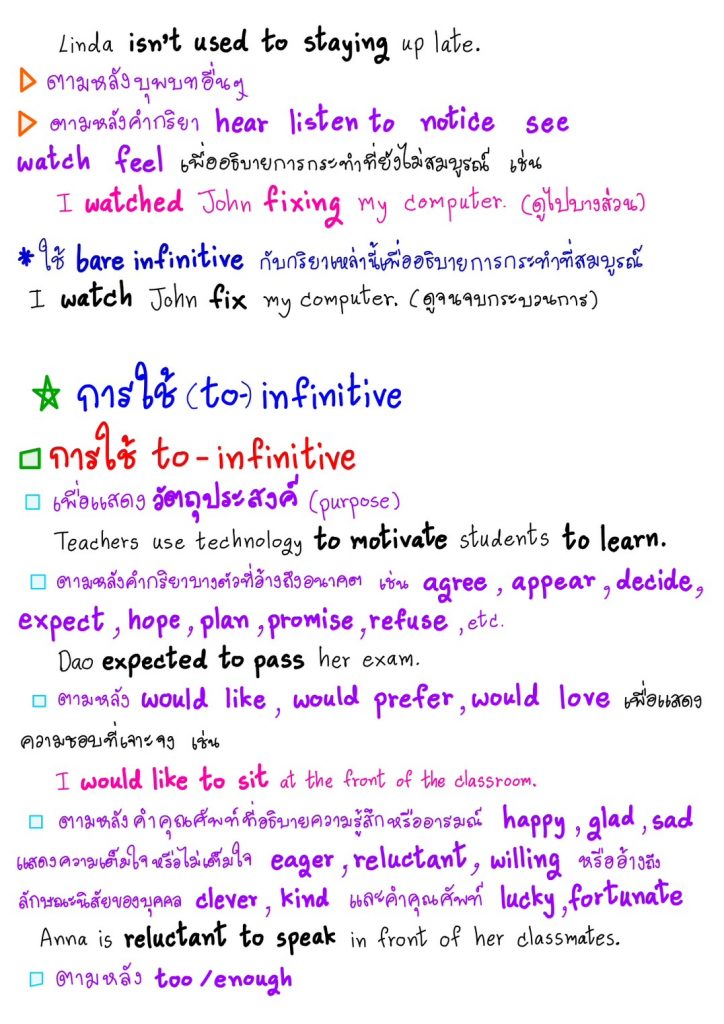 Linda isn't used to staying up late.
ตามหลังบุพบทอื่นๆ
ตามหลังคำกริยา hear listen to notice see
watch feel เพื่ออธิบายการกระทำที่ยังไม่สมบูรณ์ เช่น
I watched John fixing my computer. (ดูไปบางส่วน)
* ใช้ bare infinitive กับกริยาเหล่านี้เพื่ออธิบายการกระทำที่สมบูรณ์
I watch John fix my computer. (ดูจนจบกระบวนการ)
การใช้ (to-) infinitive
การใช้ to - infinitive
เพื่อแสดง วัตถุประสงค์ (purpose)
Teachers use technology to motivate students to learn.
ตามหลังคำกริยาบางตัวที่อ้างถึงอนาคต เช่น agree, appear, decide,
expect, hope, plan, promise, refuse, etc.
Dao expected to pass her exam.
ตามหลัง would like, would prefer, would love เพื่อแสดง
ความชอบที่เจาะจง เช่น
I would like to sit at the front of the classroom.
ตามหลังคำคุณศัพท์ที่อธิบายความรู้สึกหรืออารมณ์ happy, glad, sad
แสดงความเต็มใจหรือไม่เต็มใจ eager, reluctant, willing หรืออ้างถึง
ลักษณะนิสัยของบุคคล clever, kind และคำคุณศัพท์ lucky, fortunate
Anna is reluctant to speak in front of her classmates.
ตามหลัง too / enough